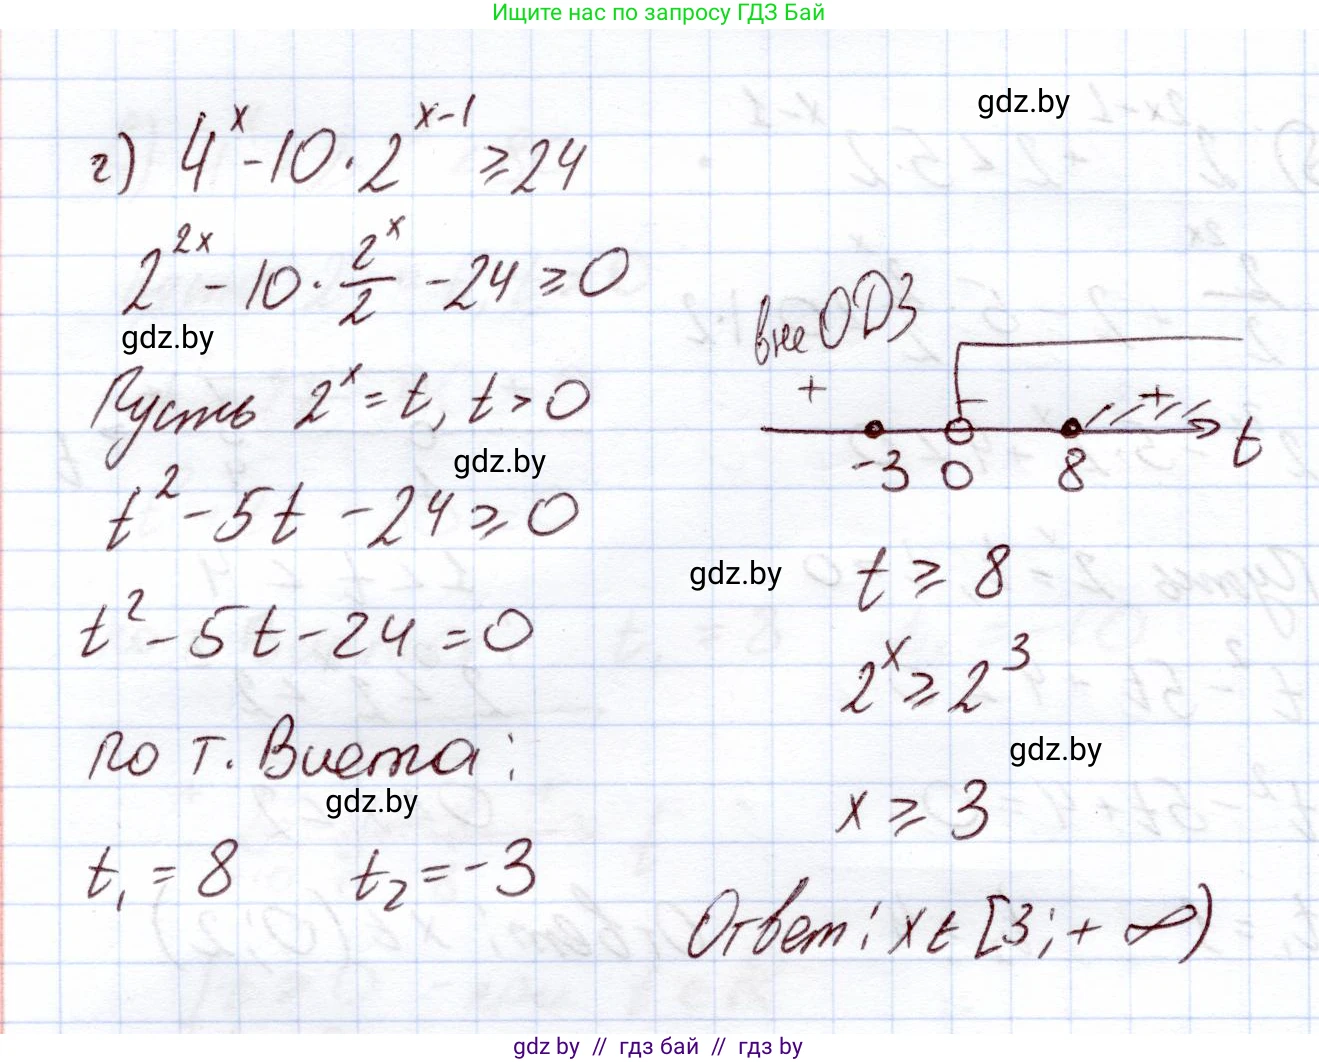 Ищите нас по запросу ГДЗ Бай
gdz.by
г) 4^x - 10 · 2^(x-1) ≥ 24
2^(2x) - 10 · 2^x/2 - 24 ≥ 0
gdz.by
Пусть 2^x = t, t > 0
gdz.by
t^2 - 5t - 24 ≥ 0
t^2 - 5t - 24 = 0
по т. Виета:
gdz.by
t₁ = 8 t₂ = -3
вне ОДЗ
+ - +
-3 0 8 t
gdz.by
t ≥ 8
2^x ≥ 2^3
gdz.by
x ≥ 3
Ответ: x ∈ [3; + ∞)
gdz by // гдз бай // гдз by